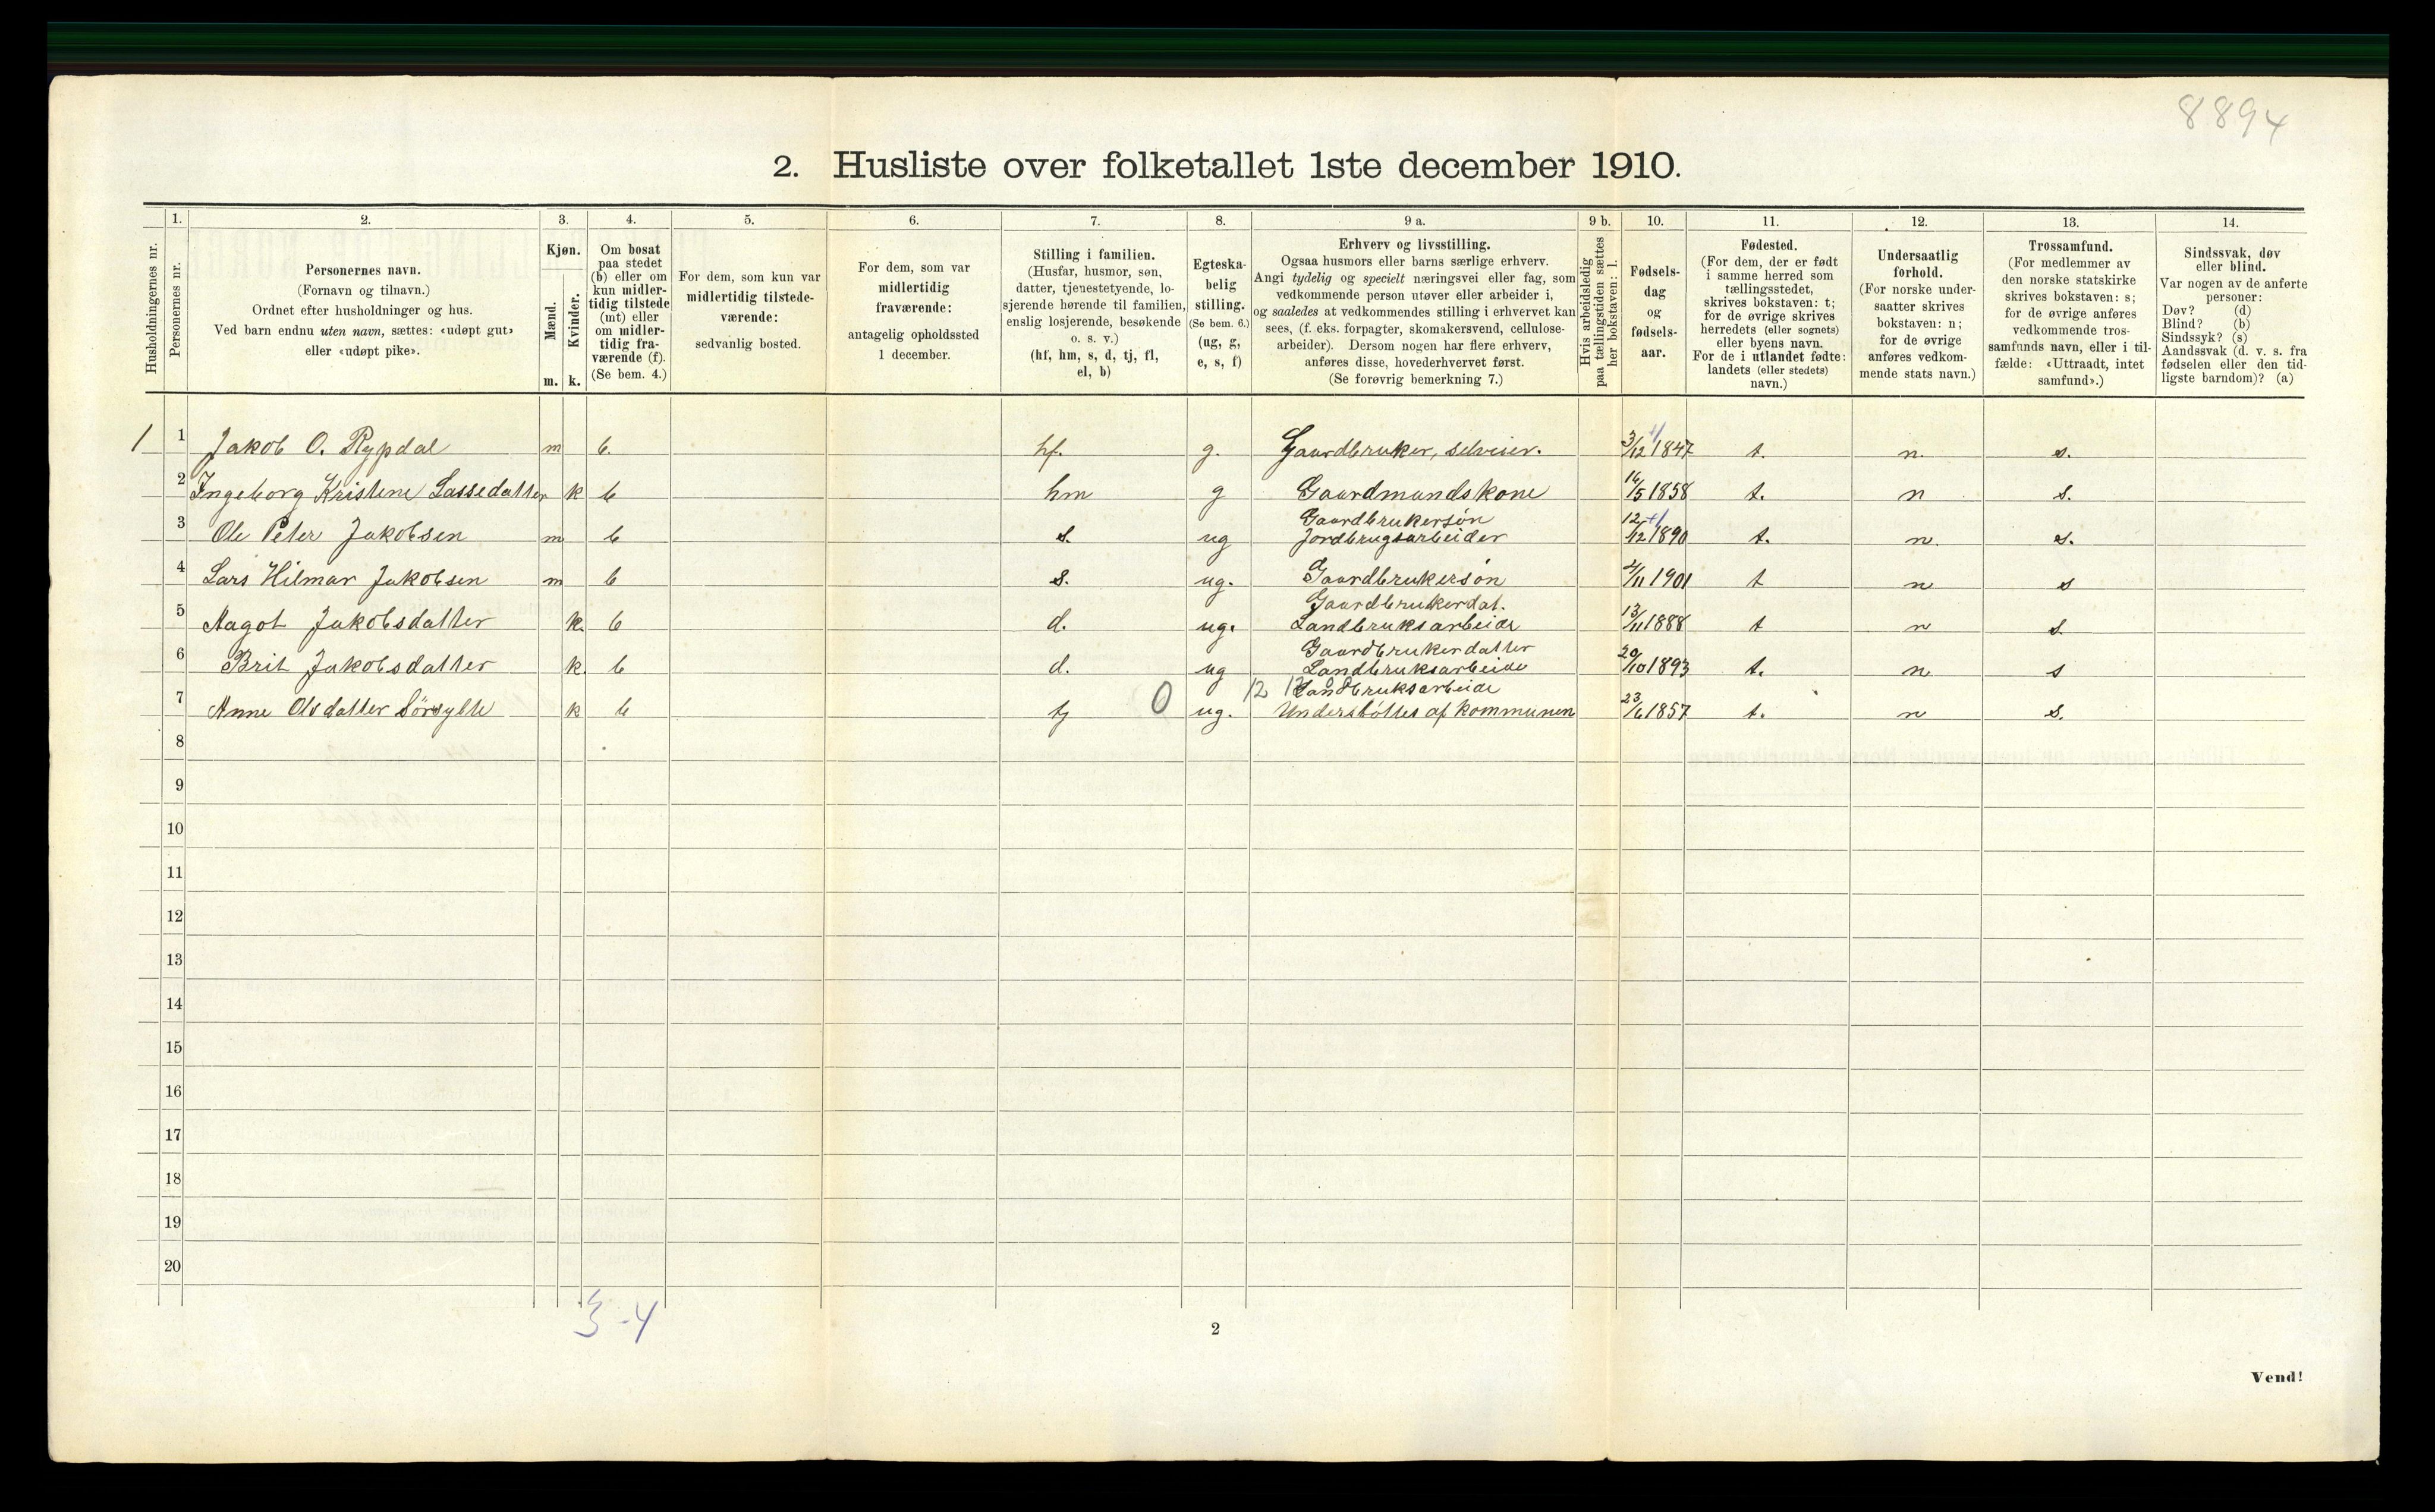 8894
2. Husliste over folketallet 1ste december 1910.
Husholdningernes nr.
1.
Personernes nr.
2.
Personernes navn.
(Fornavn og tilnavn.)
Ordnet efter husholdninger og hus.
Ved barn endnu uten navn, sættes: «udøpt gut»
eller «udøpt pike».
3.
Kjøn.
Mænd.
Kvinder.
m. k.
4.
Om bosat
paa stedet
(b) eller om
kun midler-
tidig tilstede
(mt) eller
om midler-
tidig fra-
værende (f).
(Se bem. 4.)
5.
For dem, som kun var
midlertidig tilstede-
værende:
sedvanlig bosted.
6.
For dem, som var
midlertidig
fraværende:
antagelig opholdssted
1 december.
7.
Stilling i familien.
(Husfar, husmor, søn,
datter, tjenestetyende, lo-
sjerende hørende til familien,
enslig losjerende, besøkende
o. s. v.)
(hf, hm, s, d, tj, fl,
el, b)
8.
Egteska-
belig
stilling.
(Se bem. 6.)
(ug, g,
e, s, f)
9 a.
Erhverv og livsstilling.
Ogsaa husmors eller barns særlige erhverv.
Angi tydelig og specielt næringsvei eller fag, som
vedkommende person utøver eller arbeider i,
og saaledes at vedkommendes stilling i erhvervet kan
sees, (f. eks. forpagter, skomakersvend, cellulose-
arbeider). Dersom nogen har flere erhverv,
anføres disse, hovederhvervet først.
(Se forøvrig bemerkning 7.)
9 b.
Hvis arbeidsledig
paa tællingstiden sættes
her bokstaven: l.
10.
Fødsels-
dag
og
fødsels-
aar.
11.
Fødested.
(For dem, der er født
i samme herred som
tællingsstedet,
skrives bokstaven: t;
for de øvrige skrives
herredets (eller sognets)
eller byens navn.
For de i utlandet fødte:
landets (eller stedets)
navn.)
12.
Undersaatlig
forhold.
(For norske under-
saatter skrives
bokstaven: n;
for de øvrige
anføres vedkom-
mende stats navn.)
13.
Trossamfund.
(For medlemmer av
den norske statskirke
skrives bokstaven: s;
for de øvrige anføres
vedkommende tros-
samfunds navn, eller i til-
fælde: «Uttraadt, intet
samfund».)
14.
Sindssvak, døv
eller blind.
Var nogen av de anførte
personer:
Døv? (d)
Blind? (b)
Sindssyk? (s)
Aandssvak (d. v. s. fra
fødselen eller den tid-
ligste barndom)? (a)
1 1 Jakob O. Rypdal m b. hf. g. Gaardbruker, selveier. 3/12 1847 t. n. s.
2 Ingeborg Kristene Lassedatter k b hm g Gaardmandskone 14/5 1858 t. n s.
3 Ole Peter Jakobsen m b s. ug Gaardbrukersøn
Jordbrugsarbeider 12/12 1890 t. n. s.
4 Lars Hilmar Jakobsen m b s. ug. Gaardbrukersøn 4/11 1901 t n s
5 Aagot Jakobsdatter k. b d. ug. Gaardbrukerdat.
Landbruksarbeide 13/11 1888 t n s.
6 Brit Jakobsdatter k. b d. ug Gaardbrukerdatter
Landbruksarbeide 20/10 1893 t. n s
7 Anne Olsdatter Sørsylte k b tj 0 ug. 12 Landbruksarbeide
Understöttes af kommunen 23/6 1857 t. n s.
8
9
10
11
12
13
14
15
16
17
18
19
20
3-4
2
Vend!